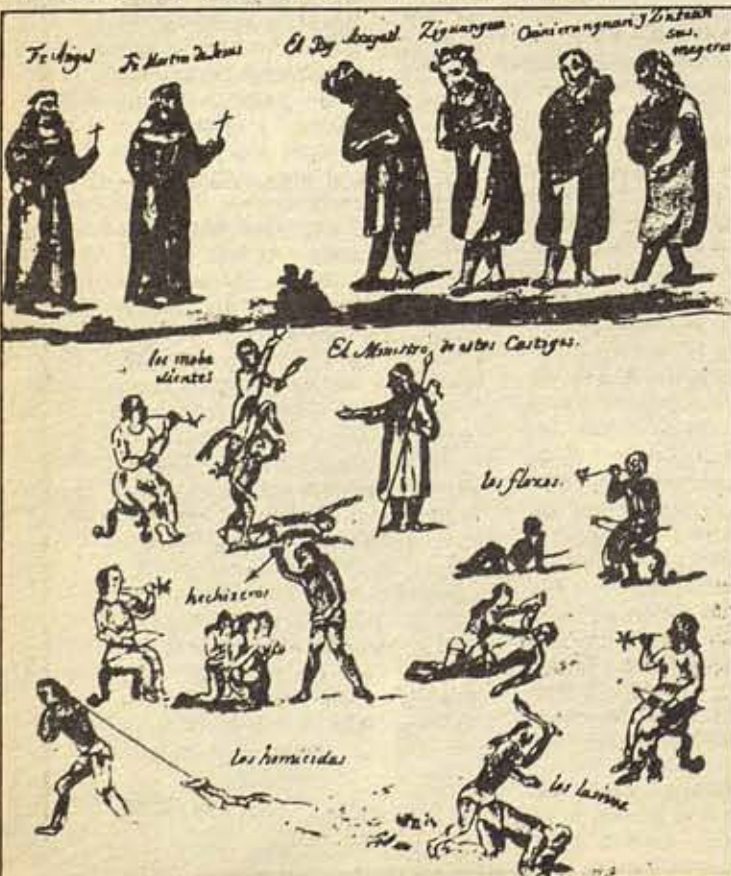 Fr Angel
Fr Martin de Jesus
El Rey Axayatl.
Ziguangua.
y Zintzun
sus
mugeres
los inobe
dientes
El Ministro de estos Castigos.
los floxos.
hechiseros
los homicidas
los lasivos